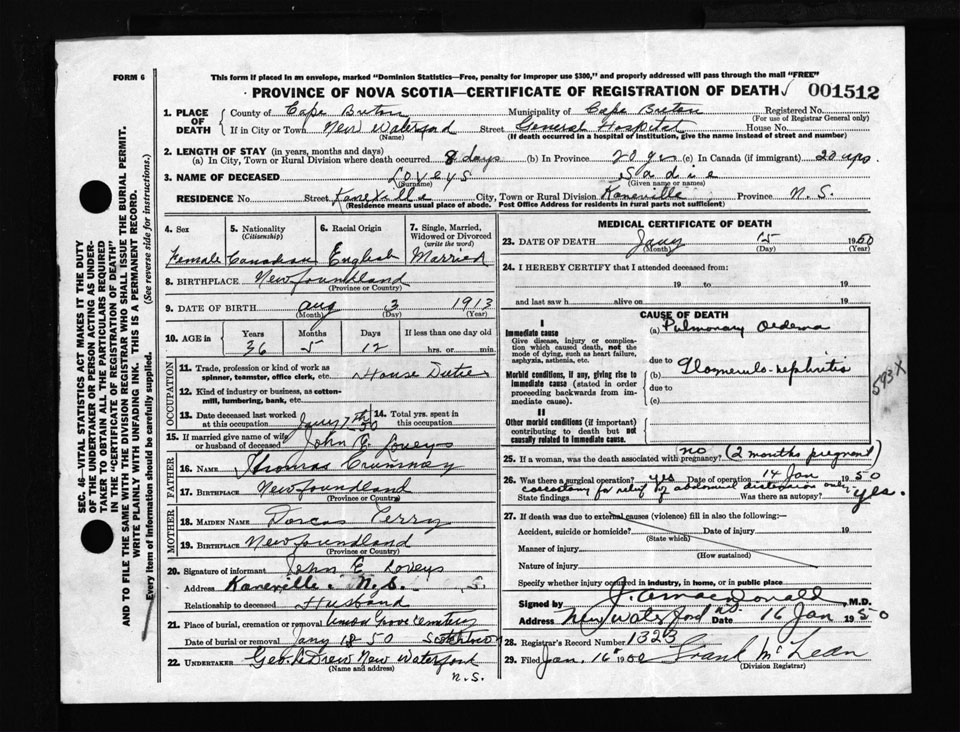 FORM 6
This form if placed in an envelope, marked "Dominion Statistics—Free, penalty for improper use $300," and properly addressed will pass through the mail "FREE"
PROVINCE OF NOVA SCOTIA—CERTIFICATE OF REGISTRATION OF DEATH 001512
1. PLACE OF DEATH County of Cape Breton Municipality of Cape Breton Registered No.
(For use of Registrar General only)
If in City or Town New Waterford Street General Hospital House No.
(Name) (If death occurred in a hospital or institution, give the name instead of street and number)
2. LENGTH OF STAY (in years, months and days)
(a) In City, Town or Rural Division where death occurred 8 days (b) In Province 20 yrs (c) In Canada (if immigrant) 20 yrs.
3. NAME OF DECEASED Loveys Sadie
(Surname) (Given name or names)
RESIDENCE No. Street Kaneville City, Town or Rural Division Kaneville Province N.S.
(Residence means usual place of abode. Post Office Address for residents in rural parts not sufficient)
4. Sex 5. Nationality (Citizenship) 6. Racial Origin 7. Single, Married, Widowed or Divorced (write the word)
Female Canadian English Married
8. BIRTHPLACE Newfoundland
(Province or Country)
9. DATE OF BIRTH Aug 3 1913
(Month) (Day) (Year)
10. AGE in Years Months Days If less than one day old
36 5 12 hrs. or min.
OCCUPATION
11. Trade, profession or kind of work as spinner, teamster, office clerk, etc. House Dutie
12. Kind of industry or business, as cotton-mill, lumbering, bank, etc.
13. Date deceased last worked at this occupation Jany 7th 50 14. Total yrs. spent in this occupation
15. If married give name of wife or husband of deceased John E. Loveys
FATHER
16. NAME Thomas Crummey
17. BIRTHPLACE Newfoundland
(Province or Country)
MOTHER
18. MAIDEN NAME Dorcas Perry
19. BIRTHPLACE Newfoundland
(Province or Country)
20. Signature of informant John E Loveys
Address Kaneville. N.S.
Relationship to deceased Husband
21. Place of burial, cremation or removal Union Grove Cemetery
Date of burial or removal Jany 18-50 Scotchtown
22. UNDERTAKER Geo. L. Drew New Waterford
(Name and address)
N.S.
MEDICAL CERTIFICATE OF DEATH
23. DATE OF DEATH Jany 15 1950
(Month) (Day) (Year)
24. I HEREBY CERTIFY that I attended deceased from:
19 to 19
and last saw h alive on 19
CAUSE OF DEATH
I
Immediate cause (a) Pulmonary Oedema
Give disease, injury or complication which caused death, not the mode of dying, such as heart failure, asphyxia, asthenia, etc.
due to
Morbid conditions, if any, giving rise to immediate cause (stated in order proceeding backwards from immediate cause).
(b) Glomerulo-nephritis
due to
(c)
593X
II
Other morbid conditions (if important) contributing to death but not causally related to immediate cause.
25. If a woman, was the death associated with pregnancy? no (2 months pregnant)
26. Was there a surgical operation? yes Date of operation 14 Jan 1950
State findings for relief of abdominal distension only Was there an autopsy? yes.
27. If death was due to external causes (violence) fill in also the following:—
Accident, suicide or homicide? Date of injury 19
(State which)
Manner of injury
(How sustained)
Nature of injury
Specify whether injury occurred in industry, in home, or in public place
Signed by M.D.
Address New Waterford NS Date 16 Jan 1950
28. Registrar's Record Number 1323
29. Filed Jan. 16 Frank McLean
(Division Registrar)
SEC. 46—VITAL STATISTICS ACT MAKES IT THE DUTY
OF THE UNDERTAKER OR PERSON ACTING AS UNDER-
TAKER TO OBTAIN ALL THE PARTICULARS REQUIRED
IN THE "CERTIFICATE OF REGISTRATION OF DEATH"
AND TO FILE THE SAME WITH THE DIVISION REGISTRAR WHO SHALL ISSUE THE BURIAL PERMIT.
WRITE PLAINLY WITH UNFADING INK. THIS IS A PERMANENT RECORD.
Every item of information should be carefully supplied. (See reverse side for instructions.)